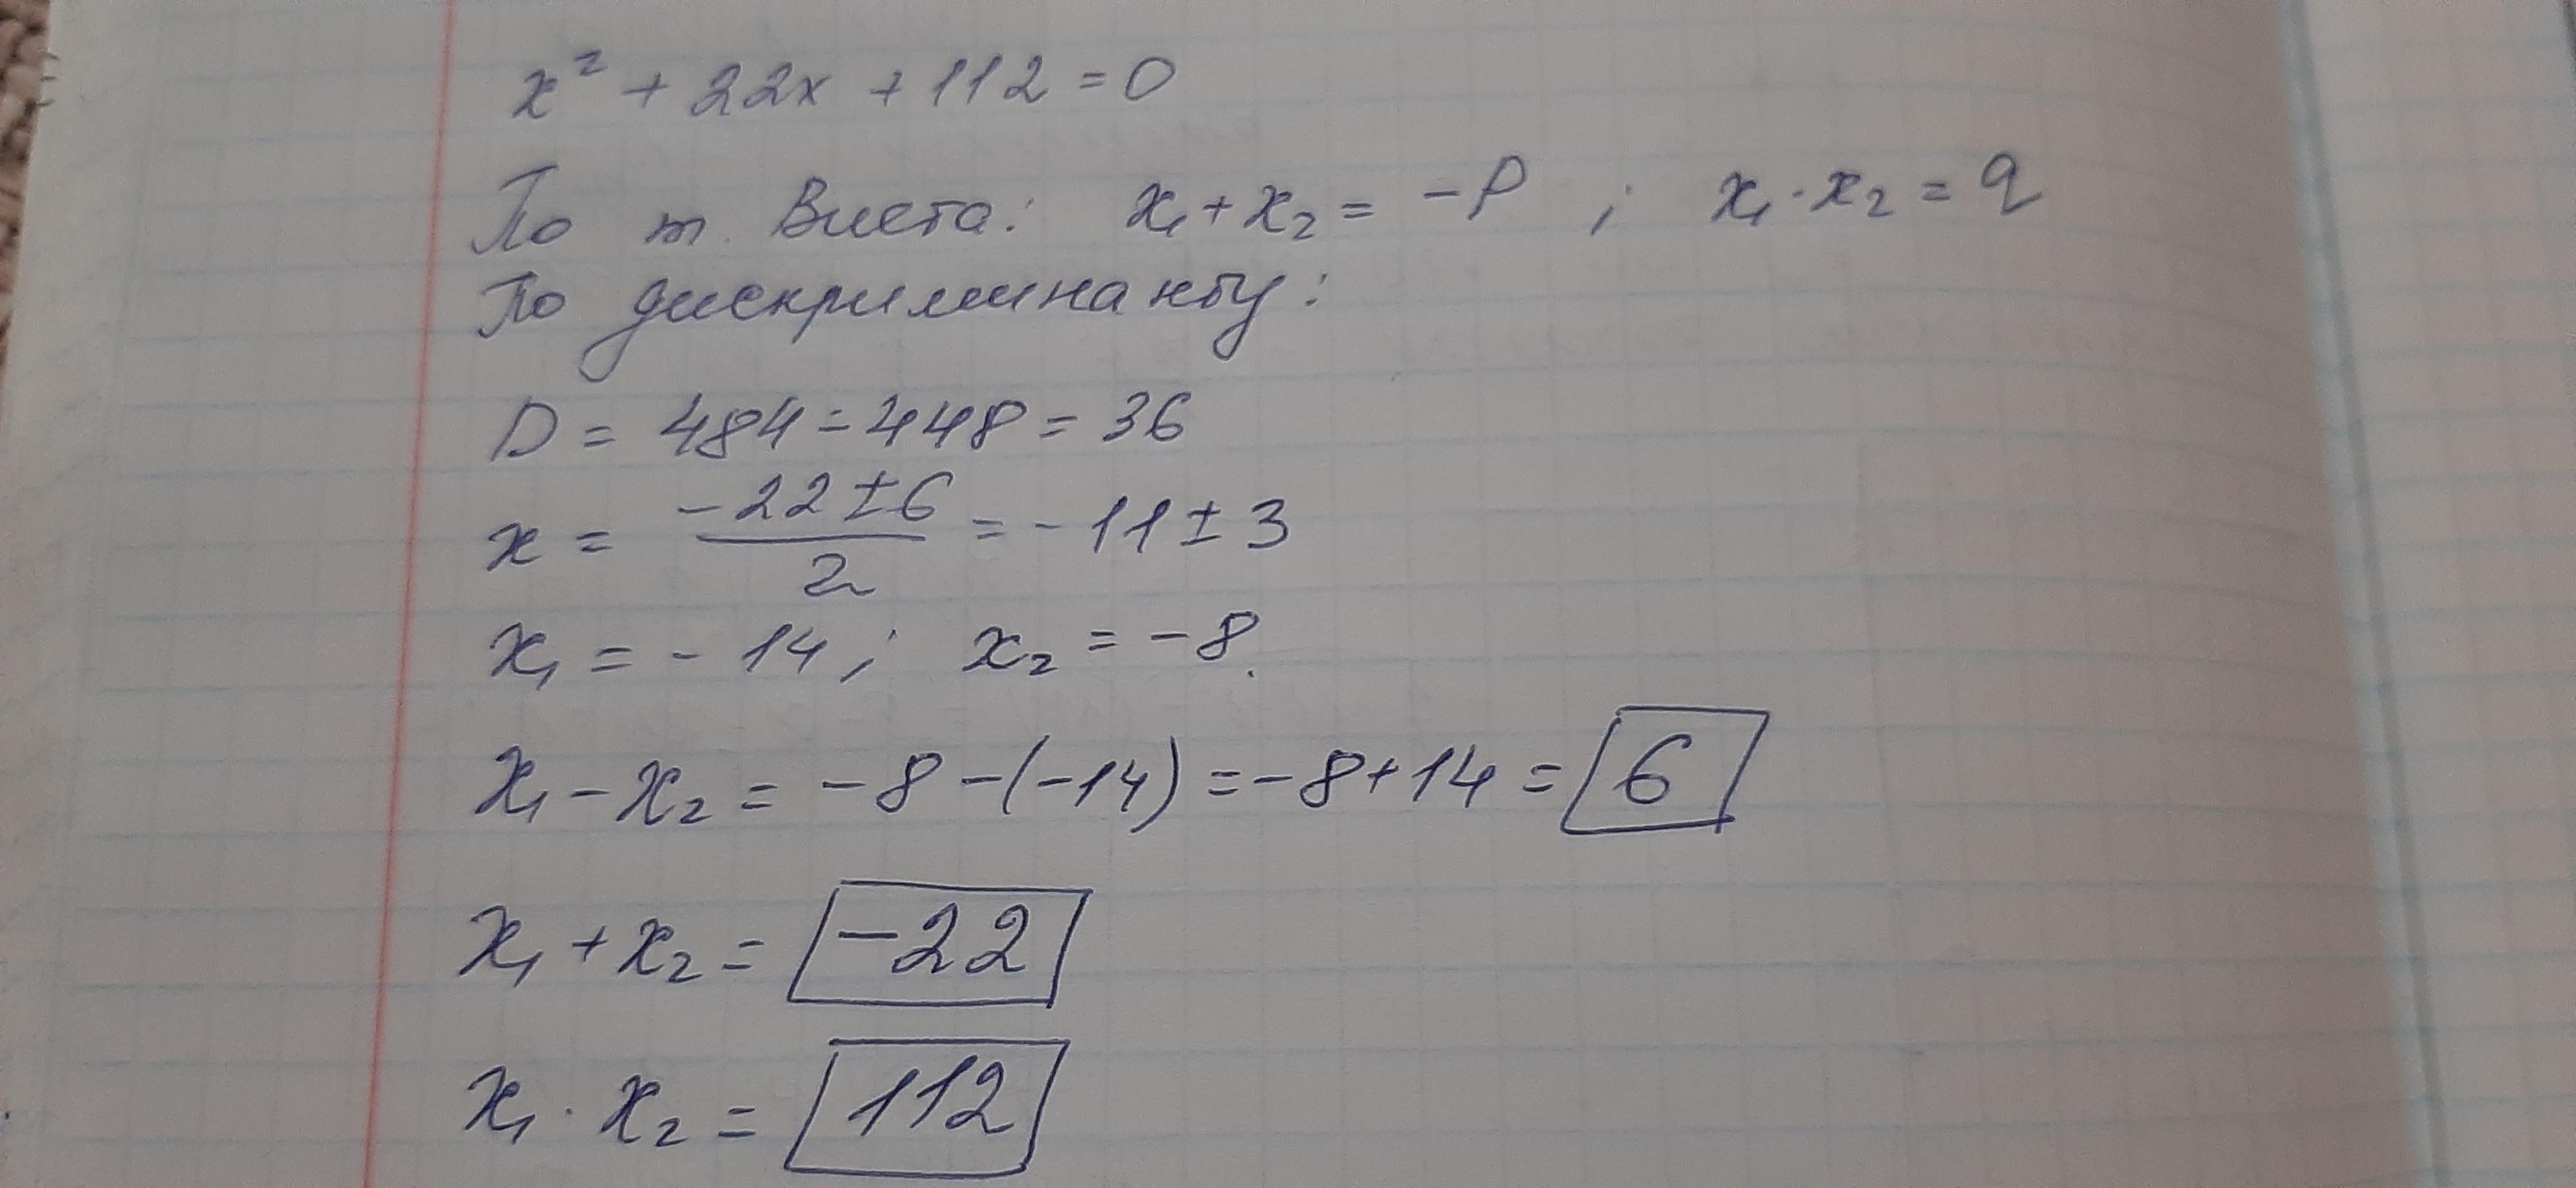 x² + 22x + 112 = 0
По т. Виета: x₁ + x₂ = -p ; x₁ · x₂ = q
По дискриминанту:
D = 484 - 448 = 36
x = (-22 ± 6)/2 = -11 ± 3
x₁ = -14; x₂ = -8.
x₁ - x₂ = -8 - (-14) = -8 + 14 = 6
x₁ + x₂ = -22
x₁ · x₂ = 112